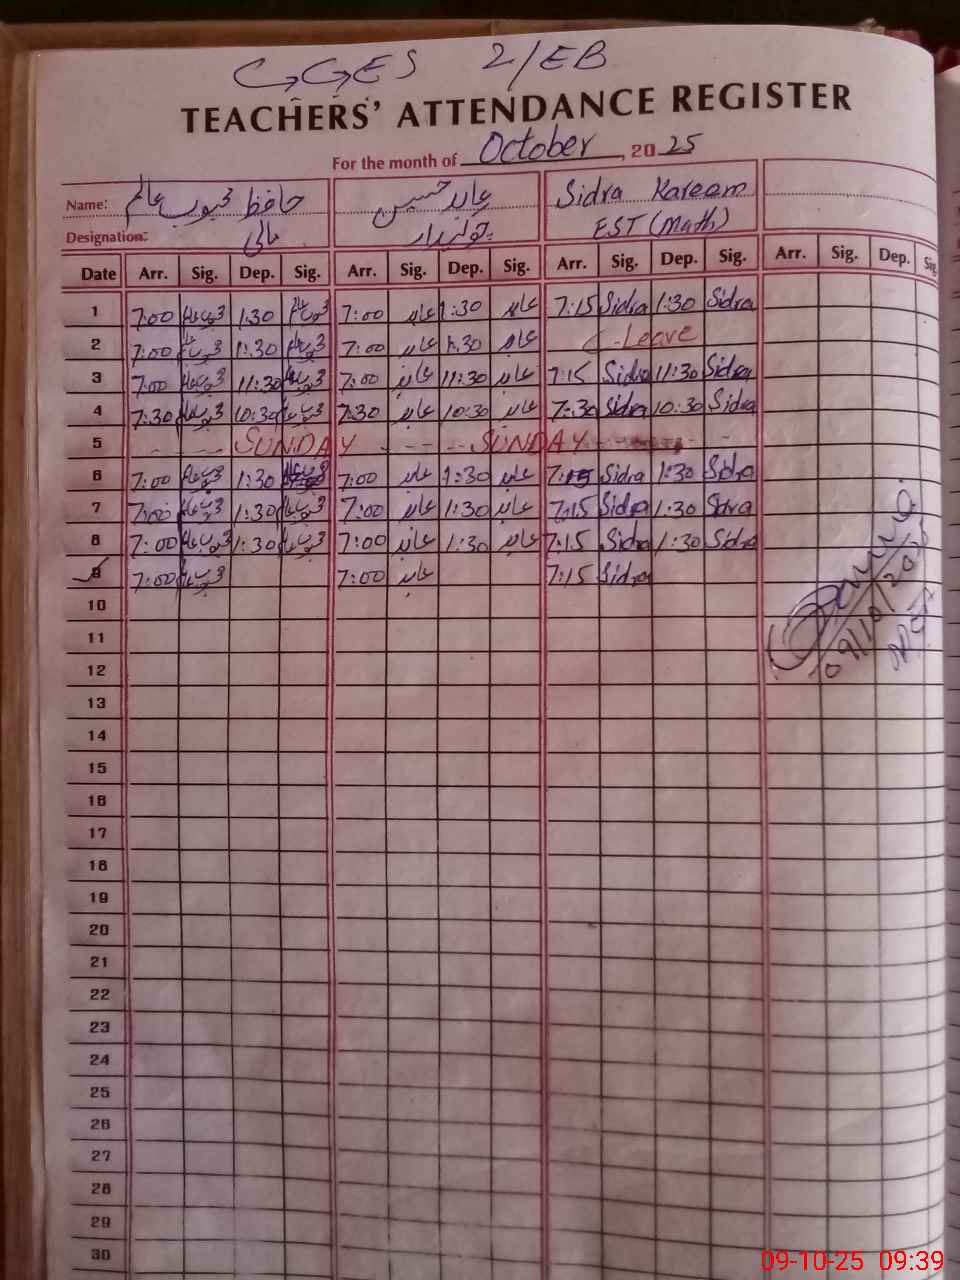 GGES 2/EB
TEACHERS' ATTENDANCE REGISTER
For the month of October, 2025
Name: حافظ محبوب عالم عابد حسین Sidra Kareem
Designation: مالی چوکیدار EST (Math)
Date Arr. Sig. Dep. Sig. Arr. Sig. Dep. Sig. Arr. Sig. Dep. Sig. Arr. Sig. Dep. Sig
1 7:00 محبوب عالم 1:30 محبوب عالم 7:00 عابد 1:30 عابد 7:15 Sidra 1:30 Sidra
2 7:00 محبوب عالم 1:30 محبوب عالم 7:00 عابد 1:30 عابد C-Leave
3 7:00 محبوب عالم 11:30 محبوب عالم 7:00 عابد 11:30 عابد 7:15 Sidra 11:30 Sidra
4 7:30 محبوب عالم 10:30 محبوب عالم 7:30 عابد 10:30 عابد 7:30 Sidra 10:30 Sidra
5 SUNDAY SUNDAY
6 7:00 محبوب عالم 1:30 7:00 عابد 1:30 عابد 7:15 Sidra 1:30 Sidra
7 7:00 محبوب عالم 1:30 محبوب عالم 7:00 عابد 1:30 عابد 7:15 Sidra 1:30 Sidra
8 7:00 محبوب عالم 1:30 محبوب عالم 7:00 عابد 1:30 عابد 7:15 Sidra 1:30 Sidra
9 7:00 محبوب عالم 7:00 عابد 7:15 Sidra
10
11
12
13
14
15
16
17
18
19
20
21
22
23
24
25
26
27
28
29
30
09/10/2025
09-10-25 09:39